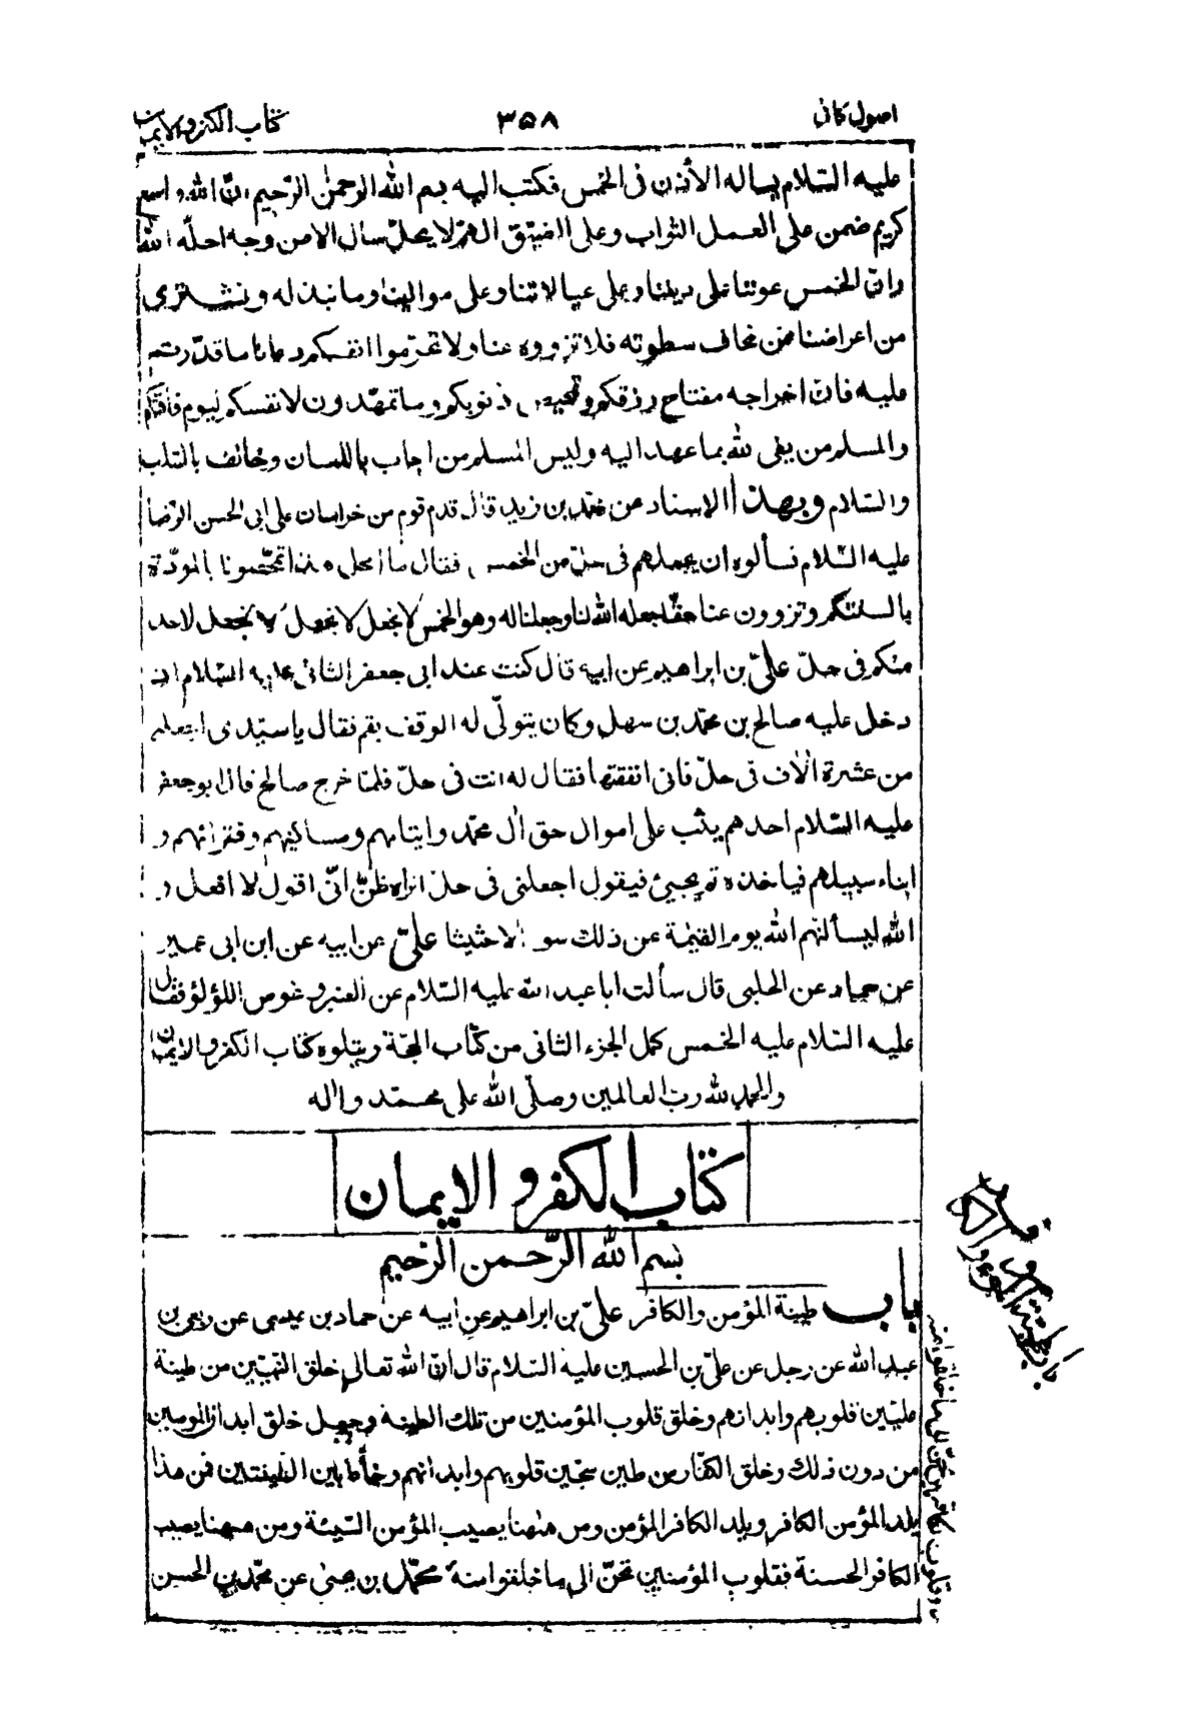 اصول كافى
٣٥٨
كتاب الكفر والايمان
عليه السّلام يساله الأذن فى الخمس فكتب اليه بسم الله الرحمٰن الرّحيم انّ الله واسع
كريم ضمن على العمل الثواب وعلى الضيق الهمّ لا يحلّ مال الا من وجه احلّه الله
وانّ الخمس عوننا على ديننا وعلى عيالاتنا وعلى موالينا وما نبذله ونشترى
من اعراضنا ممن نخاف سطوته فلا تزووه عنا ولا تحرّموا انفسكم دعائنا ما قدرتم
عليه فان اخراجه مفتاح رزقكم وتمحيص ذنوبكم وما تمهّدون لانفسكم ليوم فاقتكم
والمسلم من يفى لله بما عهد اليه وليس المسلم من اجاب باللسان وخالف بالقلب
والسّلام وبهذا الاسناد عن محمّد بن زيد قال قدم قوم من خراسان على ابى الحسن الرّضا
عليه السّلام فسألوه ان يجعلهم فى حلّ من الخمس فقال ما امحل هذا تمحّضونا بالمودّة
بالسنتكم وتزوون عنا حقّا جعله الله لنا وجعلنا له وهو الخمس لا نجعل لا نجعل لا نجعل لاحد
منكم فى حلّ علىّ بن ابراهيم عن ابيه قال كنت عند ابى جعفر الثانى عليه السّلام اذ
دخل عليه صالح بن محمّد بن سهل وكان يتولّى له الوقف بقم فقال يا سيّدى اجعلنى
من عشرة اٰلاف فى حلّ فانى انفقتها فقال له انت فى حلّ فلمّا خرج صالح قال ابو جعفر
عليه السّلام احدهم يثب على اموال حق اٰل محمّد وايتامهم ومساكينهم وفقرائهم و
ابناء سبيلهم فياخذه ثم يجيئ فيقول اجعلنى فى حلّ اتراه ظنّ انّى اقول لا افعل و
الله ليسألنهم الله يوم القيٰمة عن ذلك سوالا حثيثا علىّ عن ابيه عن ابن ابى عمير
عن حماد عن الحلبى قال سألت ابا عبد الله عليه السّلام عن العنبر وغوص اللؤلؤ فقال
عليه السّلام عليه الخمس كمل الجزء الثانى من كتاب الحجّة ويتلوه كتاب الكفر والايمان
والحمد لله ربّ العالمين وصلّى الله على محمّد واٰله
كتاب الكفر والايمان
بسم الله الرّحمن الرّحيم
باب طينة المؤمن والكافر علىّ بن ابراهيم عن ابيه عن حماد بن عيسى عن ربعى بن
عبد الله عن رجل عن علىّ بن الحسين عليه السّلام قال انّ الله تعالى خلق النّبيّين من طينة
عليّين قلوبهم وابدانهم وخلق قلوب المؤمنين من تلك الطينة وجعل خلق ابدان المؤمنين
من دون ذلك وخلق الكفّار من طين سجّين قلوبهم وابدانهم وخلط بين الطينتين فمن هذا
يلد المؤمن الكافر ويلد الكافر المؤمن ومن هٰهنا يصيب المؤمن السّيئة ومن هٰهنا يصيب
الكافر الحسنة فقلوب المؤمنين تحنّ الى ما خلقوا منه محمّد بن يحيىٰ عن محمّد بن الحسين
وقلوب الكافرين تحنّ الى ما خلقوا منه